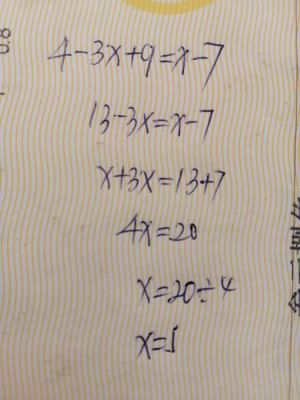 4-3x+9=x-7
13-3x=x-7
x+3x=13+7
4x=20
x=20÷4
x=5